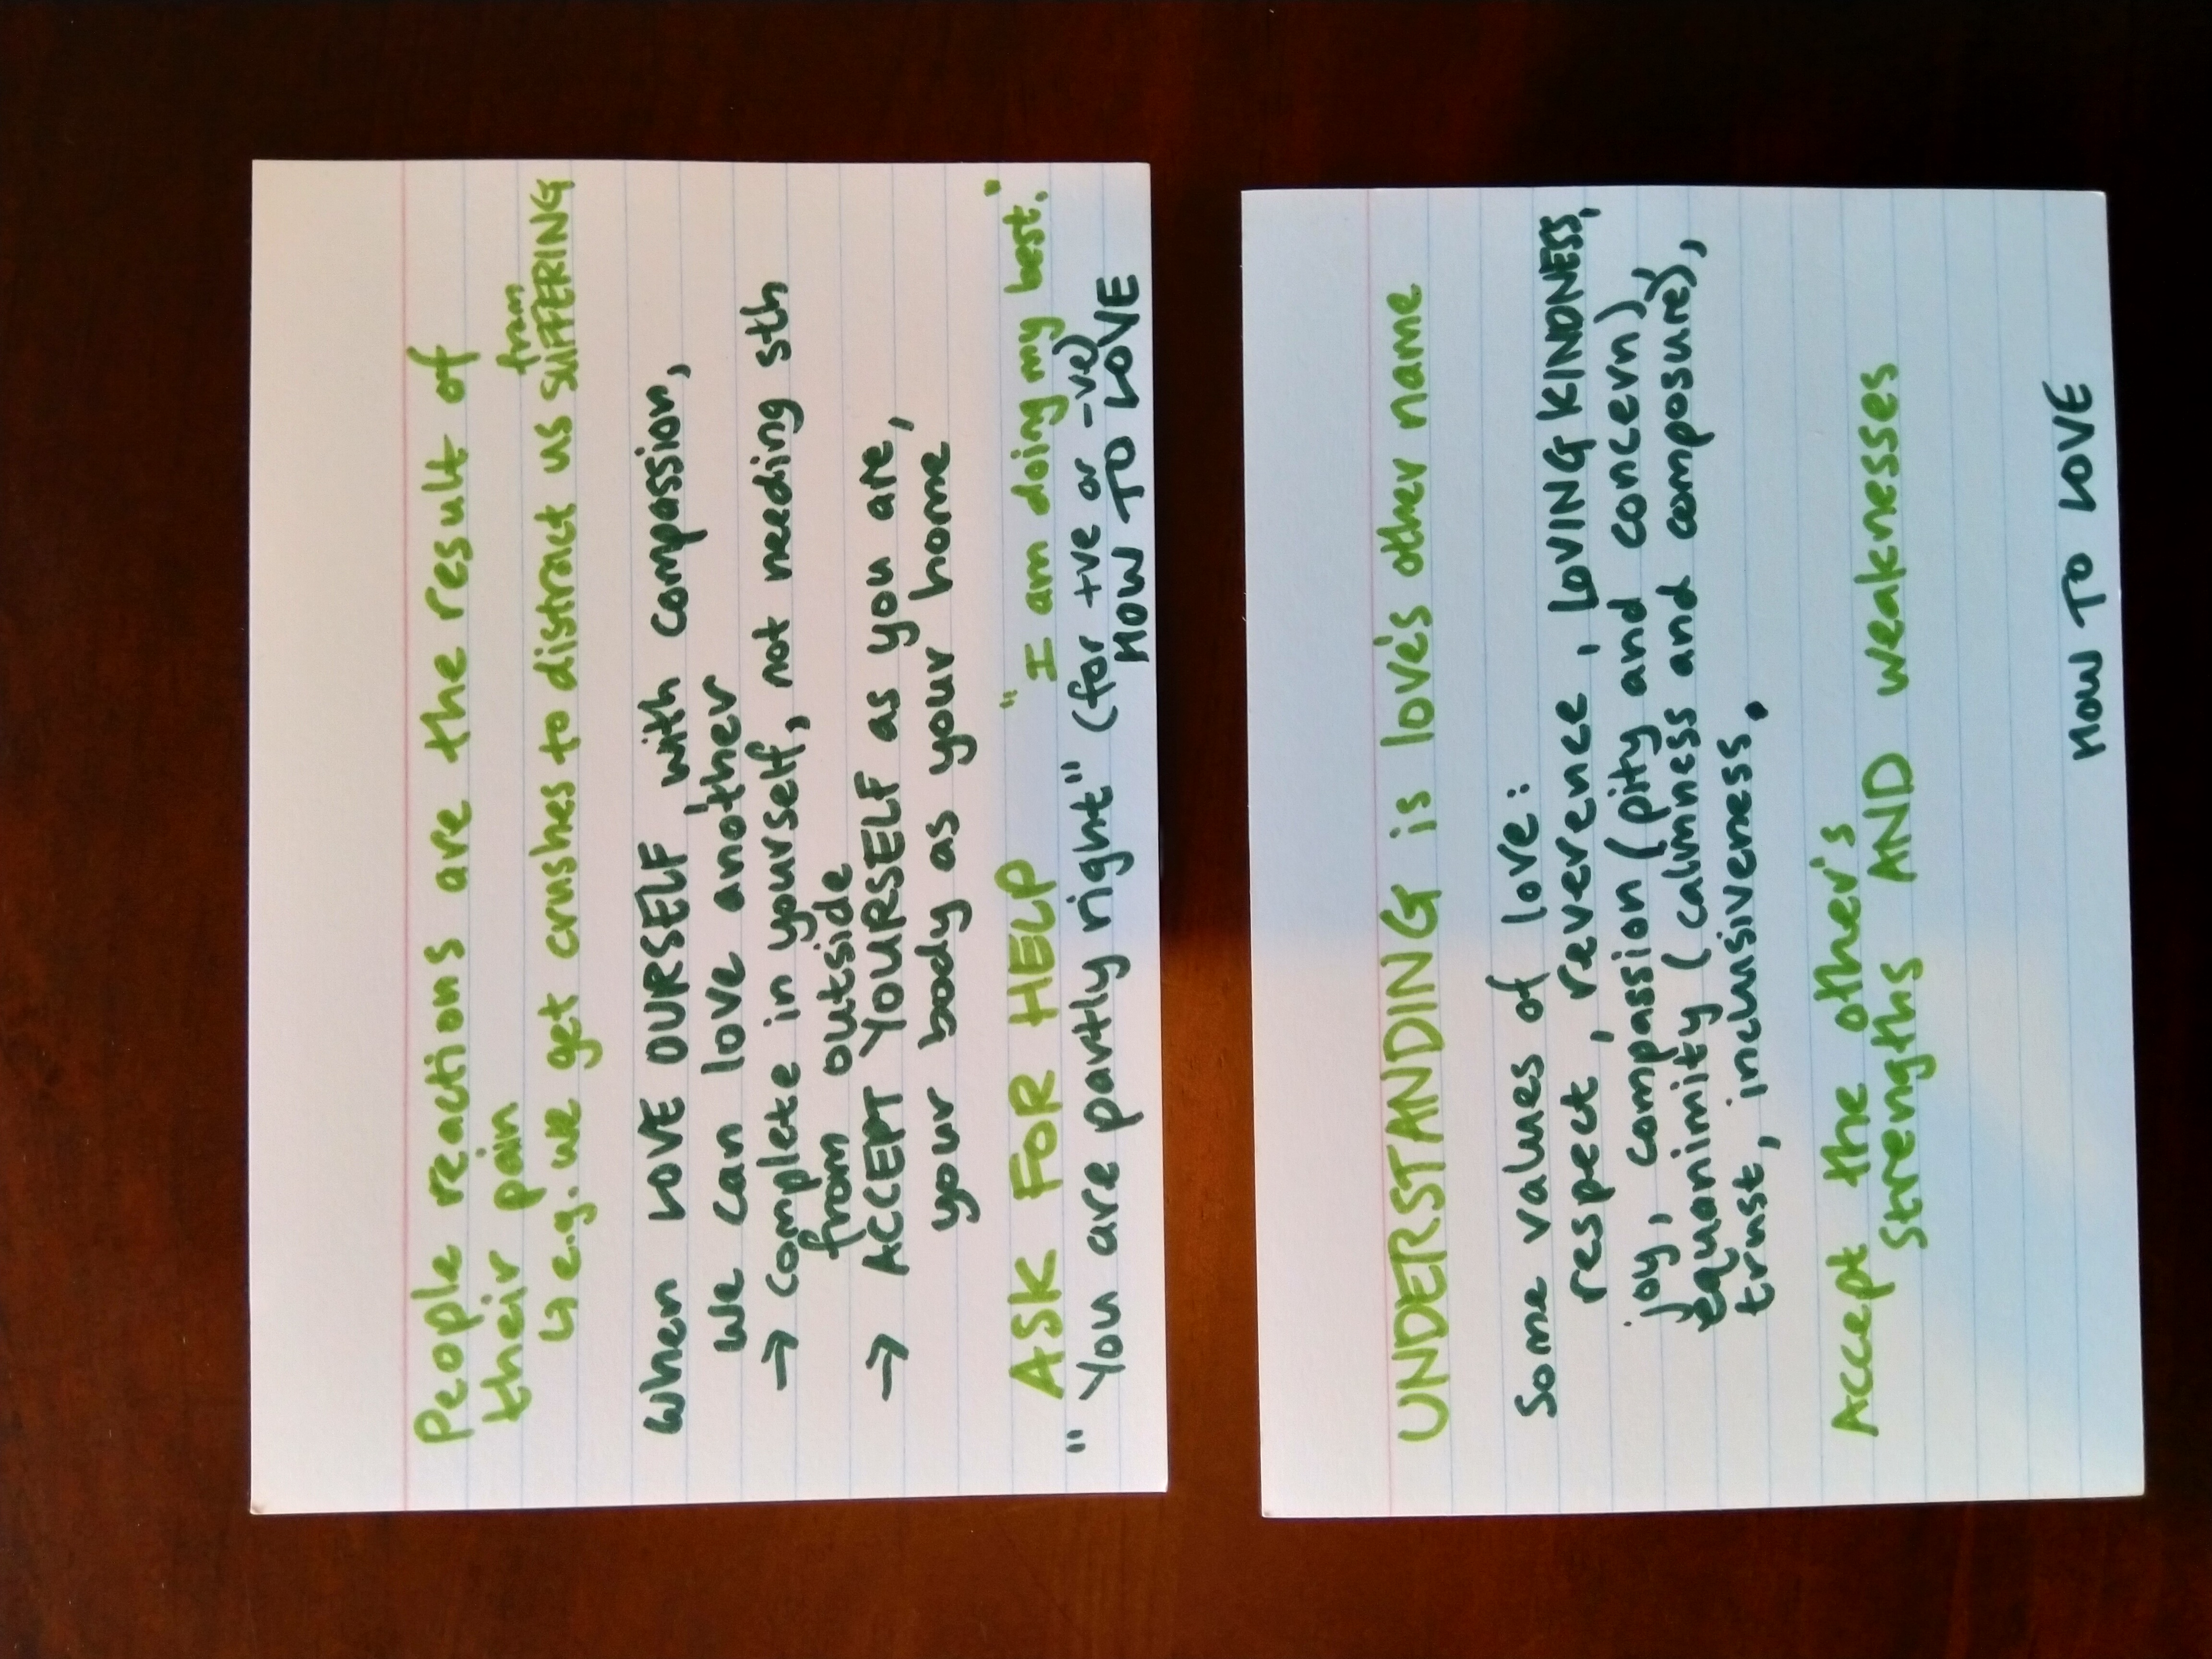 People reactions are the result of
their pain
↳ e.g. we get crushes to distract us from SUFFERING
When LOVE OURSELF with compassion,
we can love another
→ complete in yourself, not needing sth
from outside
→ ACCEPT YOURSELF as you are,
your body as your home
ASK FOR HELP "I am doing my best."
"You are partly right" (for +ve or -ve)
HOW TO LOVE
UNDERSTANDING is love's other name
Some values of love:
respect, reverence, LOVING KINDNESS,
joy, compassion (pity and concern),
equanimity (calmness and composure),
trust, inclusiveness.
Accept the other's
strengths AND weaknesses
HOW TO LOVE